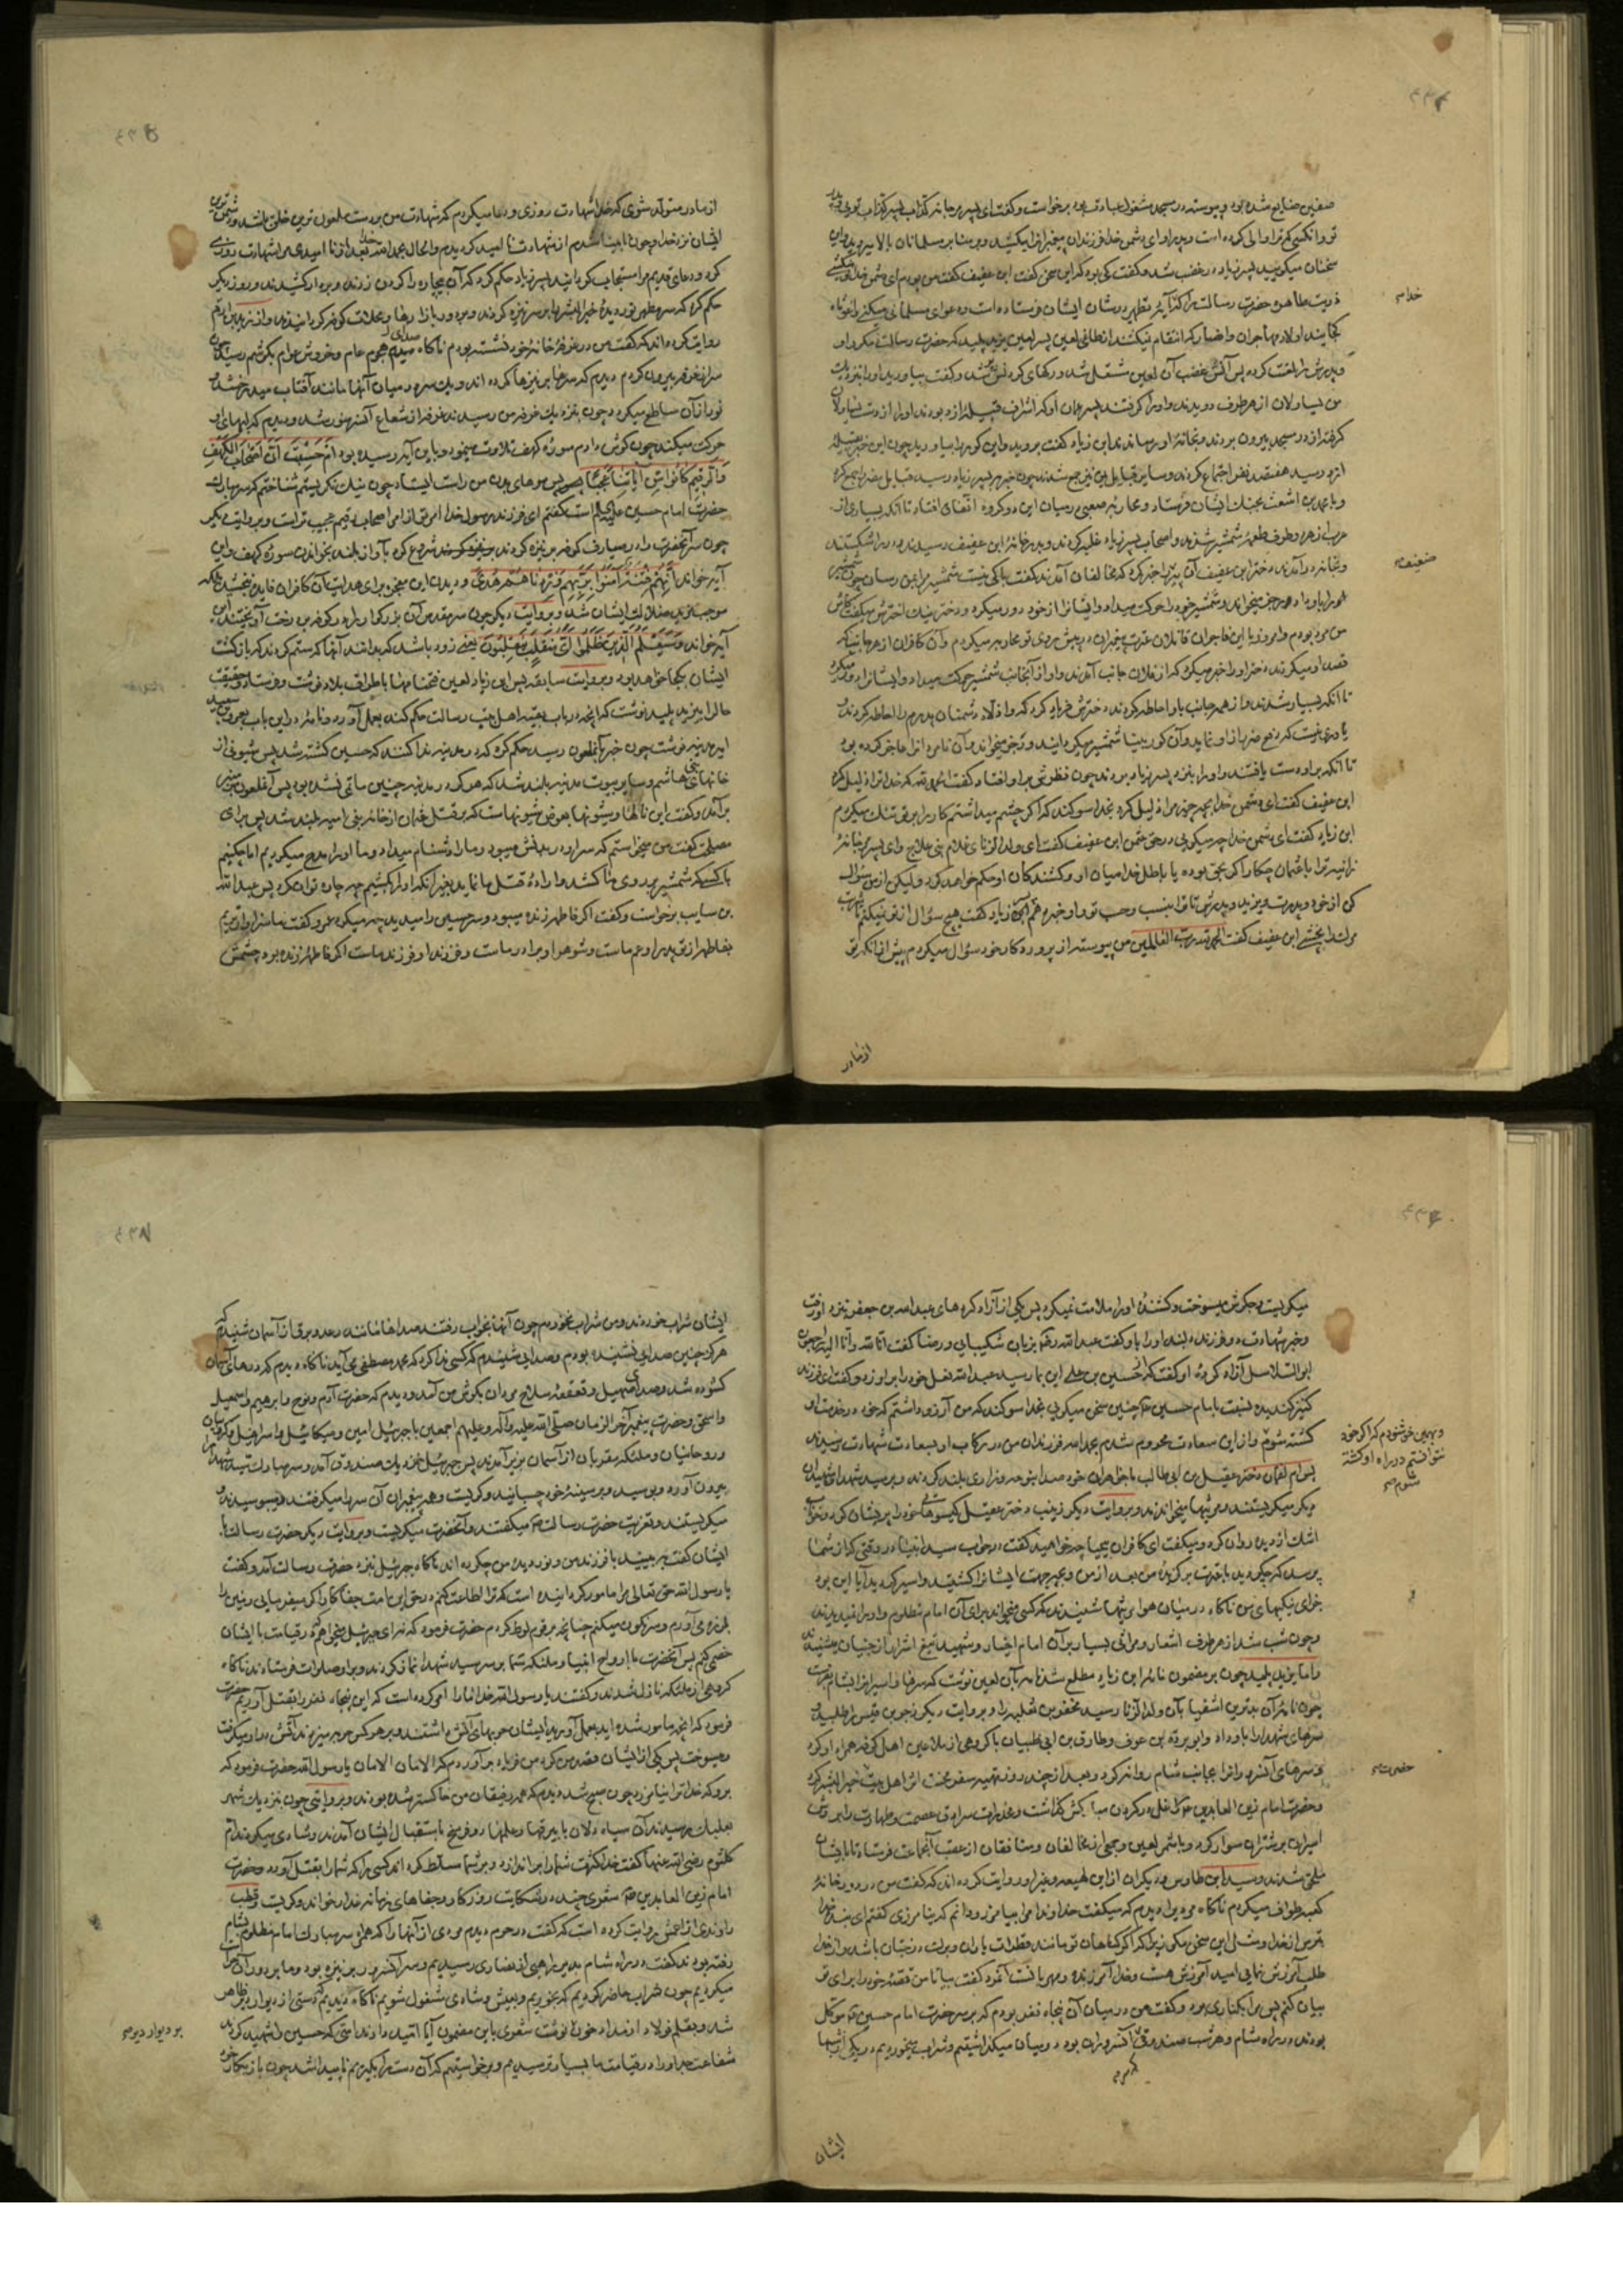 صفین ضایع شده بود و پیوسته در مسجد مشغول عبادت بود برخاست و گفت ای پسر مرجانه کذاب پسر کذاب تویی و پدر
تو و آنکسی که ترا والی کرده است و پدر او ای دشمن خدا فرزندان پیغمبر را میکشید و بر منابر مسلمانان بالا میروید و این
سخنان میگویید پسر زیاد در غضب شد و گفت کی بود که این سخن گفت ابن عفیف گفت من بودم ای دشمن خدا میکشی
ذریت طاهره حضرت رسالت را که آیه تطهیر در شان ایشان فرستاده است و دعوای مسلمانی میکنی واغوثاه
کجایند اولاد مهاجران و انصار که انتقام نمیکشند از طاغی لعین پسر لعین یزید پلید که حضرت رسالت مکرر او
و پدرش را لعنت کرده پس آتش غضب آن لعین مشتعل شد و رگهای گردنش پر شد و گفت بیاورید او را نزدیک
من یساولان از هر طرف دویدند و او را گرفتند پسر عمان او که اشراف قبیله ازد بودند او را از دست یساولان
گرفته از در مسجد بیرون بردند و بخانه او رسانیدند ابن زیاد گفت بروید و این کور را بیاورید چون این خبر بقبیله
ازد رسید هفتصد نفر اجتماع کردند و سایر قبایل یمن نیز جمع شدند چون خبر بپسر زیاد رسید قبایل مضر را جمع کرد
و با محمد بن اشعث بجنگ ایشان فرستاد و محاربه صعبی در میان این دو گروه اتفاق افتاد تا آنکه بسیاری از
عرب از هر دو طرف طعمه شمشیر شدند و اصحاب پسر زیاد غلبه کردند و بدر خانه ابن عفیف رسیدند و در را شکستند
و بخانه در آمدند دختر ابن عفیف آن پیر را خبر کرد که مخالفان آمدند گفت باکی نیست شمشیر مرا بمن رسان چون شمشیر
خود را باو داد رجز میخواند و شمشیر خود را حرکت میداد و ایشانرا از خود دور میکرد و دختر نیک اخترش میگفت کاش
من مرد بودم و امروز با این فاجران قاتلان عترت پیغمبران در پیش روی تو محاربه میکردم و آن کافران از هر جانب که
قصد او میکردند دختر او را خبر میکرد که از فلان جانب آمدند و او از آنجانب شمشیر حرکت میداد و ایشانرا دور میکرد
تا آنکه بسیار شدند و از همه جانب باو احاطه کردند دخترش فریاد کرد که واذلاه دشمنان پدرم را احاطه کردند و
یاوری نیست که دفع ضرر از او نماید و آن کور بینا شمشیر میگردانید و رجز میخواند و آن نامردانرا عاجز کرده بود
تا آنکه بر او دست یافتند و او را بنزد پسر زیاد بردند چون نظرش بر او افتاد گفت الحمد لله که خدا ترا ذلیل کرد
ابن عفیف گفت ای دشمن خدا بچه چیز مرا ذلیل کرد بخدا سوگند که اگر چشم میداشتم کار را بر تو تنگ میکردم
ابن زیاد گفت ای دشمن خدا چه میگویی در حق عثمان ابن عفیف گفت ای ولد الزنا ای غلام بنی علاج و ای پسر مرجانه
زانیه ترا با عثمان چکار اگر بحق بوده یا باطل خدا میان او و کشندگان او حکم خواهد کرد ولیکن از من سؤال
کن از خود و پدرت و یزید و پدرش تا ترا بنسب و حسب تو و او خبر دهم ابن زیاد گفت هیچ سؤال از تو نمیکنم تا شربت
مرگ را بچشی ابن عفیف گفت الحمد لله رب العالمین من پیوسته از پروردگار خود سؤال میکردم پیش از آنکه تو
خدا
ضعیف
از مادر
از مادر متولد شوی که خدا شهادت روزی و دعا میکردم که شهادت من بر دست ملعون ترین خلق باشد و دشمن ترین
ایشان نزد خدا و چون نابینا شدم از شهادت نا امید گردیدم و الحال بحمد الله خدا بعد از نا امیدی مرا شهادت روزی
کرد و دعای قدیم مرا مستجاب گردانید پسر زیاد حکم کرد که آن بیچاره را گردن زدند و بر دار کشیدند و روز دیگر
حکم کرد که سر مطهر نور دیده خیر البشر را بر سر نیزه کردند و بر دور بازارها و محلات کوفه گردانیدند و از زید بن ارقم
روایت کرده اند که گفت من در غرفه خانه خود نشسته بودم ناگاه صدای هجوم عام و خروش عوام بگوشم رسید چون
سر از غرفه بیرون کردم دیدم که سرها بر نیزها کرده اند و یک سر در میان آنها مانند آفتاب میدرخشد و
نور از آن ساطع میگردد چون بنزدیک غرفه من رسیدند غرفه از شعاع آنسر منور شد و دیدم که لبهای او
حرکت میکند چون گوش دادم سوره کهف تلاوت مینمود و باین آیه رسیده بود ام حسبت ان اصحاب الکهف
والرقیم کانوا من آیاتنا عجبا پس موهای بدن من راست ایستاد چون نیک نگریستم شناختم که سر مبارک
حضرت امام حسین علیه السلام است گفتم ای فرزند رسول خدا امر تو از امر اصحاب رقیم عجیب تر است و بروایت دیگر
چون سر آنحضرت را در صیارف کوفه بر نیزه کردند شروع کرد بآواز بلند بخواندن سوره کهف و این
آیه خواند انهم فتیة آمنوا بربهم وزدناهم هدی و دیدن این معجزه برای هدایت آن کافران فایده نبخشید بلکه
موجب مزید ضلالت ایشان شد و بروایت دیگر چون سر مقدس آن بزرگوار را در کوفه بر درخت آویختند این
آیه خواند وسیعلم الذین ظلموا ای منقلب ینقلبون یعنی زود باشد که بدانند آنها که ستم کردند که بازگشت
ایشان بکجا خواهد بود و بروایت سابقه پس ابن زیاد لعین فتحنامها باطراف بلاد نوشت و فرستاد و حقیقت
حال را بیزید پلید نوشت که آنچه در باب بقیه اهل بیت رسالت حکم کند بعمل آورد و نامه در این باب بعمرو بن سعید
امیر مدینه نوشت چون خبر بآنملعون رسید حکم کرد که در مدینه ندا کنند که حسین کشته شد پس شیون از
خانهای بنی هاشم و سایر بیوت مدینه بلند شد که هرگز در مدینه چنین ماتمی نشده بود پس آنملعون بر منبر
برآمد و گفت این نالها و شیونها بعوض شیونهاست که در قتل عثمان از خانه بنی امیه بلند شد پس برای
مصلحت گفت من میخواستم که سر او در بدنش میبود و ما را دشنام میداد و ما او را مدح میکردیم اما چکنیم
با کسیکه شمشیر بر روی ما کشد و اراده قتل ما نماید بغیر آنکه او را بکشیم چه چاره توان کرد پس عبد الله
بن سایب برخاست و گفت اگر فاطمه زنده میبود و سر حسین را میدید چه میکرد عمرو گفت ما سزاوارتریم
بفاطمه از تو پدر او عم ماست و شوهر او برادر ماست و فرزند او فرزند ماست اگر فاطمه زنده بود چشمش
میگریست و جگرش میسوخت و کشنده او را ملامت نمیکرد پس یکی از آزاد کرده های عبد الله بن جعفر بنزد او رفت
و خبر شهادت دو فرزند دلبند او را باو گفت عبد الله رضی بزبان شکیبایی و رضا گفت انا لله وانا الیه راجعون
ابو السلاسل آزاد کرده او گفت که از حسین بن علی این بما رسید عبد الله نعل خود را بر او زد و گفت ای فرزند
کنیز گندیده نسبت بامام حسین چنین سخن میگویی بخدا سوگند که من آرزو داشتم که خود در خدمت او
کشته شوم و از این سعادت محروم شدم بحمد الله فرزندان من در رکاب او بسعادت شهادت رسیدند
پس ام لقمان دختر عقیل بن ابی طالب با خواهران خود صدا بنوحه و زاری بلند کردند و بر سید شهدا و خویشان
دیگر میگریستند و مرثیها میخواندند و بروایت دیگر زینب دختر عقیل گیسوهای خود را پریشان کرد و خون
اشک از دیده روان کرد و میگفت ای کافران بیحیا چه خواهید گفت در جواب سید انبیا در وقتی که از شما
پرسد که چه کردید با عترت برگزیده من بعد از من و بچه جهت ایشانرا کشتید و اسیر کردید آیا این بود
جزای نیکیهای من ناگاه در میان هوا مرثیها شنیدند که کسی میخواند برای آن امام مظلوم و او را نمیدیدند
و چون شب شد از هر طرف اشعار و مراثی بسیار بر آن امام اخیار و شهید تیغ اشرار از جنیان میشنیدند
و اما یزید پلید چون بر مضمون نامه ابن زیاد مطلع شد نامه بآن لعین نوشت که سرها و اسیران را بشام فرست
چون نامه آن بدترین اشقیا بآن ولد الزنا رسید مخفر بن ثعلبه را و بروایت دیگر زحر بن قیس را طلبید و
سرهای شهدا را باو داد و ابو برده بن عوف و طارق بن ابی ظبیان با گروهی از ملاعین اهل کوفه همراه او کرد
و سرهای آنسرورانرا بجانب شام روانه کرد و بعد از چند روز تهیه سفر محنت اثر اهل بیت خیر البشر کرد
و حضرت امام زین العابدین را غل در گردن مبارکش گذاشت و مخدرات سرادق عصمت و طهارت را بر وش
اسیران بر شتران سوار کرد و با شمر لعین و جمعی از مخالفان و منافقان از عقب آنجماعت فرستاد تا بایشان
ملحق شدند و سید ابن طاوس و دیگران از ابن لهیعه و غیر او روایت کرده اند که گفت من در دور خانه
کعبه طواف میکردم ناگاه مردیرا دیدم که میگفت خداوندا مرا بیامرز و دانم که نیامرزی گفتم ای بنده خدا
بترس از خدا و مثل این سخن مگو زیرا که اگر گناهان تو مانند قطرات باران و برگ درختان باشد و از خدا
طلب آمرزش نمایی امید آمرزش هست و خدا آمرزنده و مهربانست آنمرد گفت بیا تا من قصه خود را برای تو
بیان کنم پس مرا بکناری برد و گفت من در میان آن پنجاه نفر بودم که بر سر حضرت امام حسین موکل
بودند در راه شام و هر شب صندوق آنسروران بود در میان میگذاشتیم و شراب میخوردیم در یکی از شبها
و بهمین خوشنودم که اگر خود
نتوانستم در راه او کشته
شوم
حضرت
ایشان
ایشان شراب خوردند و من شراب نخوردم چون آنها بخواب رفتند صداها مانند رعد و برق از آسمان شنیدم که
هرگز چنین صدایی نشنیده بودم و صدایی شنیدم که کسی ندا کرد که محمد مصطفی می آید ناگاه دیدم که درهای آسمان
گشوده شد و صدای صهیل و قعقعه سلاح مردان بگوش من آمد و دیدم که حضرت آدم و نوح و ابراهیم و اسمعیل
و اسحق و حضرت پیغمبر آخر الزمان صلی الله علیه وآله وعلیهم اجمعین با جبرئیل امین و میکائیل و اسرافیل و کروبیان
و روحانیان و ملئکه مقربان از آسمان بزیر آمدند پس جبرئیل بنزدیک صندوق آمد و سر مبارک سید شهدا را
بیرون آورد و بوسید و بر سینه خود چسبانید و گریست و همه پیغمبران آن سر را میگرفتند و میبوسیدند و
میگریستند و تعزیت حضرت رسالت میگفتند و آنحضرت میگریست و بروایت دیگر حضرت رسالت با
ایشان گفت به بینید با فرزند من و نور دیده من چه کرده اند ناگاه جبرئیل بنزد حضرت رسالت آمد و گفت
یا رسول الله حق تعالی مرا مامور گردانیده است که ترا اطاعت کنم در حق این امت جفاکار اگر میفرمایی زمین را
بلرزه می آورم و سرنگون میکنم چنانچه بر قوم لوط کردم حضرت فرمود که نه ای جبرئیل میخواهم که در قیامت با ایشان
خصمی کنم پس آنحضرت با ارواح انبیا و ملئکه تمام بر سر سید شهدا نماز کردند و بر او صلوات فرستادند ناگاه
گروهی از ملئکه نازل شدند و گفتند یا رسول الله خدا ما را امر کرده است که این پنجاه نفر را بقتل آوریم حضرت
فرمود که آنچه مامور شده اید بعمل آورید ایشان حربهای آتش داشتند و بر هر کس حربه میزدند آتش در او میگرفت
و میسوخت پس یکی از ایشان قصد من کرد من فریاد برآوردم که الامان الامان یا رسول الله حضرت فرمود که
برو که خدا ترا نیامرزد چون صبح شد دیدم که همه رفیقان من خاکستر شده بودند و بروایتی چون بنزدیک شهر
بعلبک رسیدند آن سیاه دلان با بیرقها و علمها دو فرسخ باستقبال ایشان آمدند و شادی میکردند ام
کلثوم رضی الله عنها گفت خدا کثرت شما را براندازد و بر شما مسلط گرداند کسی را که شما را بقتل آورد و حضرت
امام زین العابدین شعری چند در شکایت روزگار و جفاهای زمانه غدار خواند و گریست و قطب
راوندی از اعمش روایت کرده است که گفت در حرم دیدم مردی از آنها را که همراه سر مبارک امام مظلوم بشام
رفته بودند گفت در راه شام بدیر راهبی از نصاری رسیدیم و سر آنسرور بر نیزه بود و ما بر دور آن حراست
میکردیم چون شراب حاضر کردیم که بخوریم و بعیش و شادی مشغول شویم ناگاه دیدیم که دستی از دیوار دیر ظاهر
شد و بقلم فولاد از مداد خون نوشت شعری باین مضمون آیا امید دارند امتی که حسین را شهید کردند
شفاعت جد او را در قیامت ما بسیار ترسیدیم و برخواستیم که آن دست را بگیریم ناپیدا شد چون باز بکار خود
بر دیوار دیر